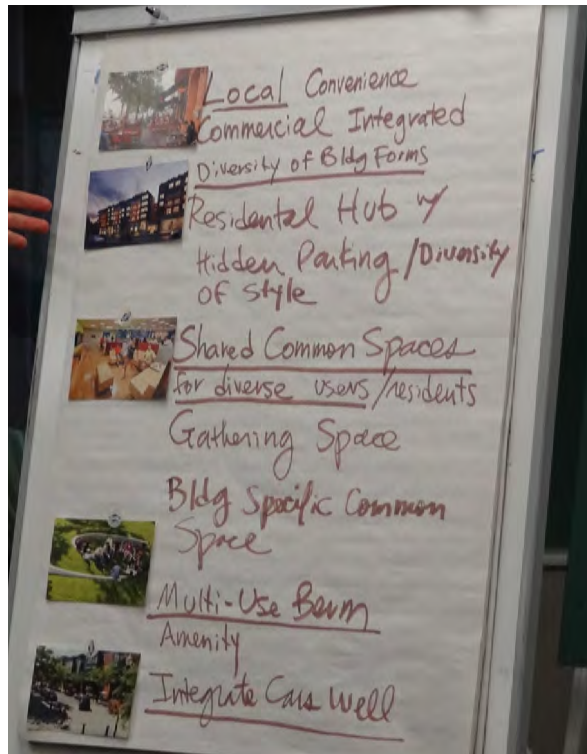 Local Convenience
Commercial Integrated
Diversity of Bldg Forms
Residental Hub w/
Hidden Parking / Diversity
of Style
Shared Common Spaces
for diverse users / residents
Gathering Space
Bldg Specific Common
Space
Multi-Use Berm
Amenity
Integrate Cars Well